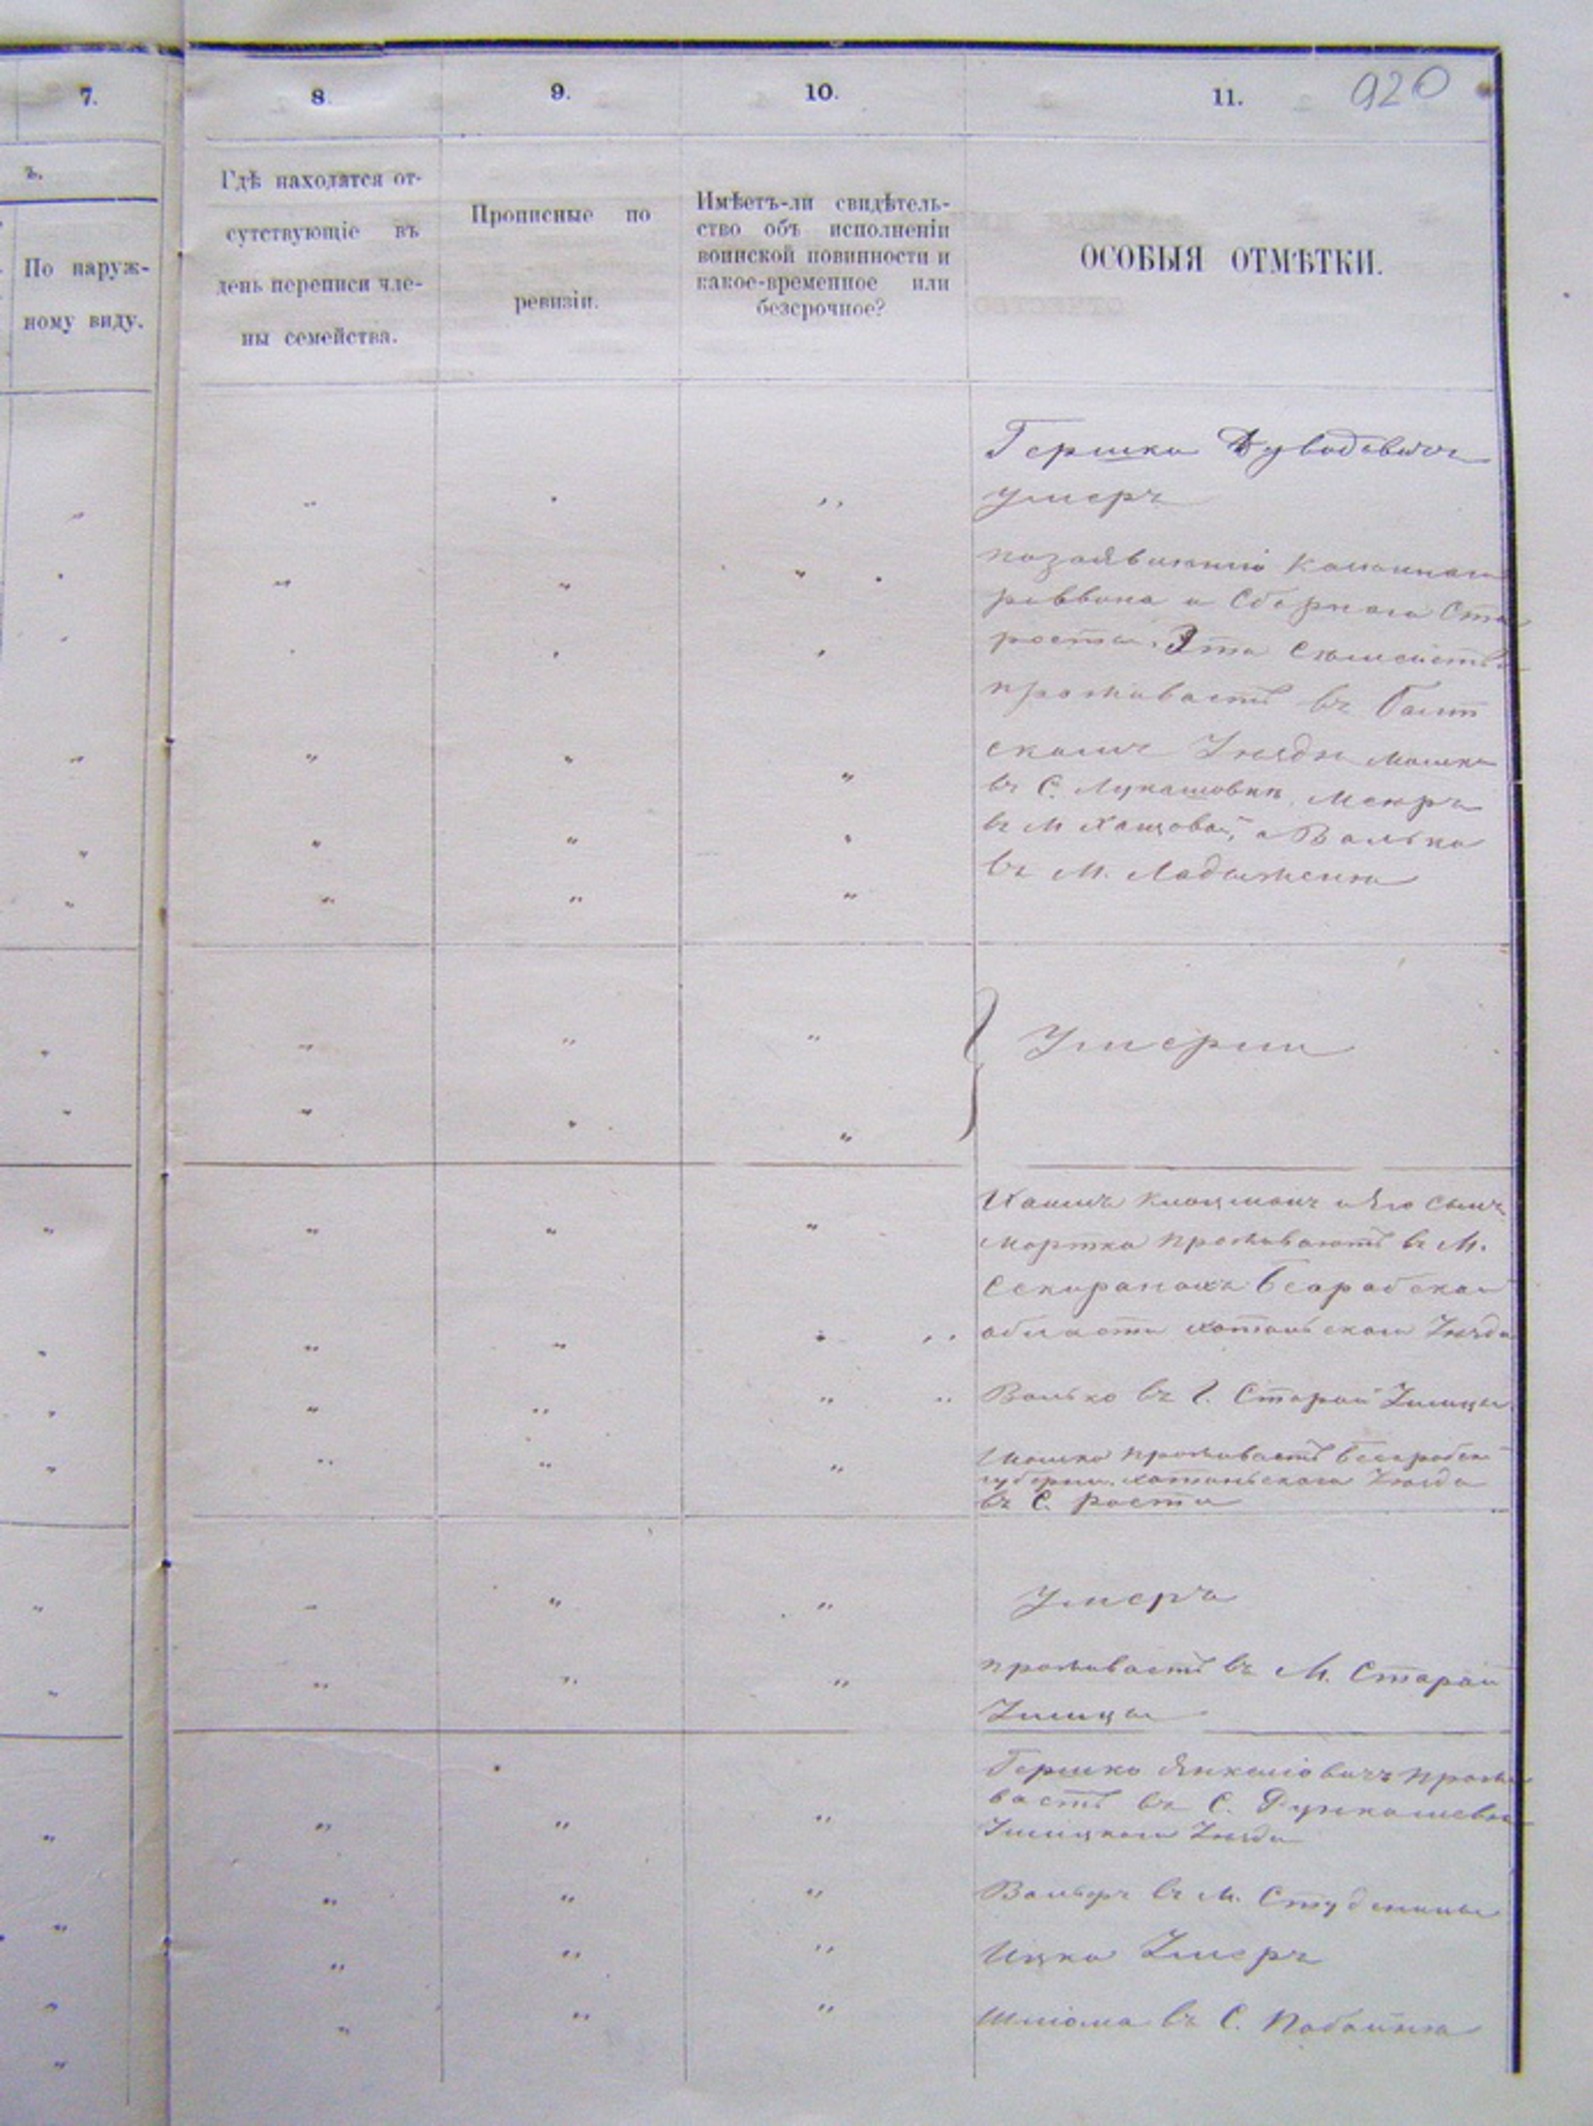 7.
8.
9.
10.
11.
920
ъ.
По наруж-
ному виду.
Гдѣ находятся от-
сутствующіе въ
день переписи чле-
ны семейства.
Прописные по
ревизіи.
Имѣетъ-ли свидѣтель-
ство объ исполненіи
воинской повинности и
какое-временное или
безсрочное?
ОСОБЫЯ ОТМѢТКИ.
Гершко
умеръ
раввина и Сборнаго Ста
росты. Эта Семейств
проживаетъ въ Балт
скомъ Уѣздѣ Мошко
въ С. Лукашовкѣ, Меиръ
въ М Хащовой, а Волько
въ М. Ладыженкѣ
Умерли
Хаимъ Клоцманъ и Его Сынъ
Мортко проживаютъ въ М.
Секуранахъ Бесарабской
области хотинскаго Уѣзда
Волько въ Г. Старой Ушицы
Мошко проживаетъ Бесарабск
губерни. хотинскаго Уѣзда
въ С. Росты
Умеръ
проживаетъ въ М. Старой
Ушицы
Гершко Янкеліовичъ прожи
ваетъ въ С.
Ушицкаго Уѣзда
Вольфъ въ М. Студеницы
Ицко Умеръ
Шліома въ С.